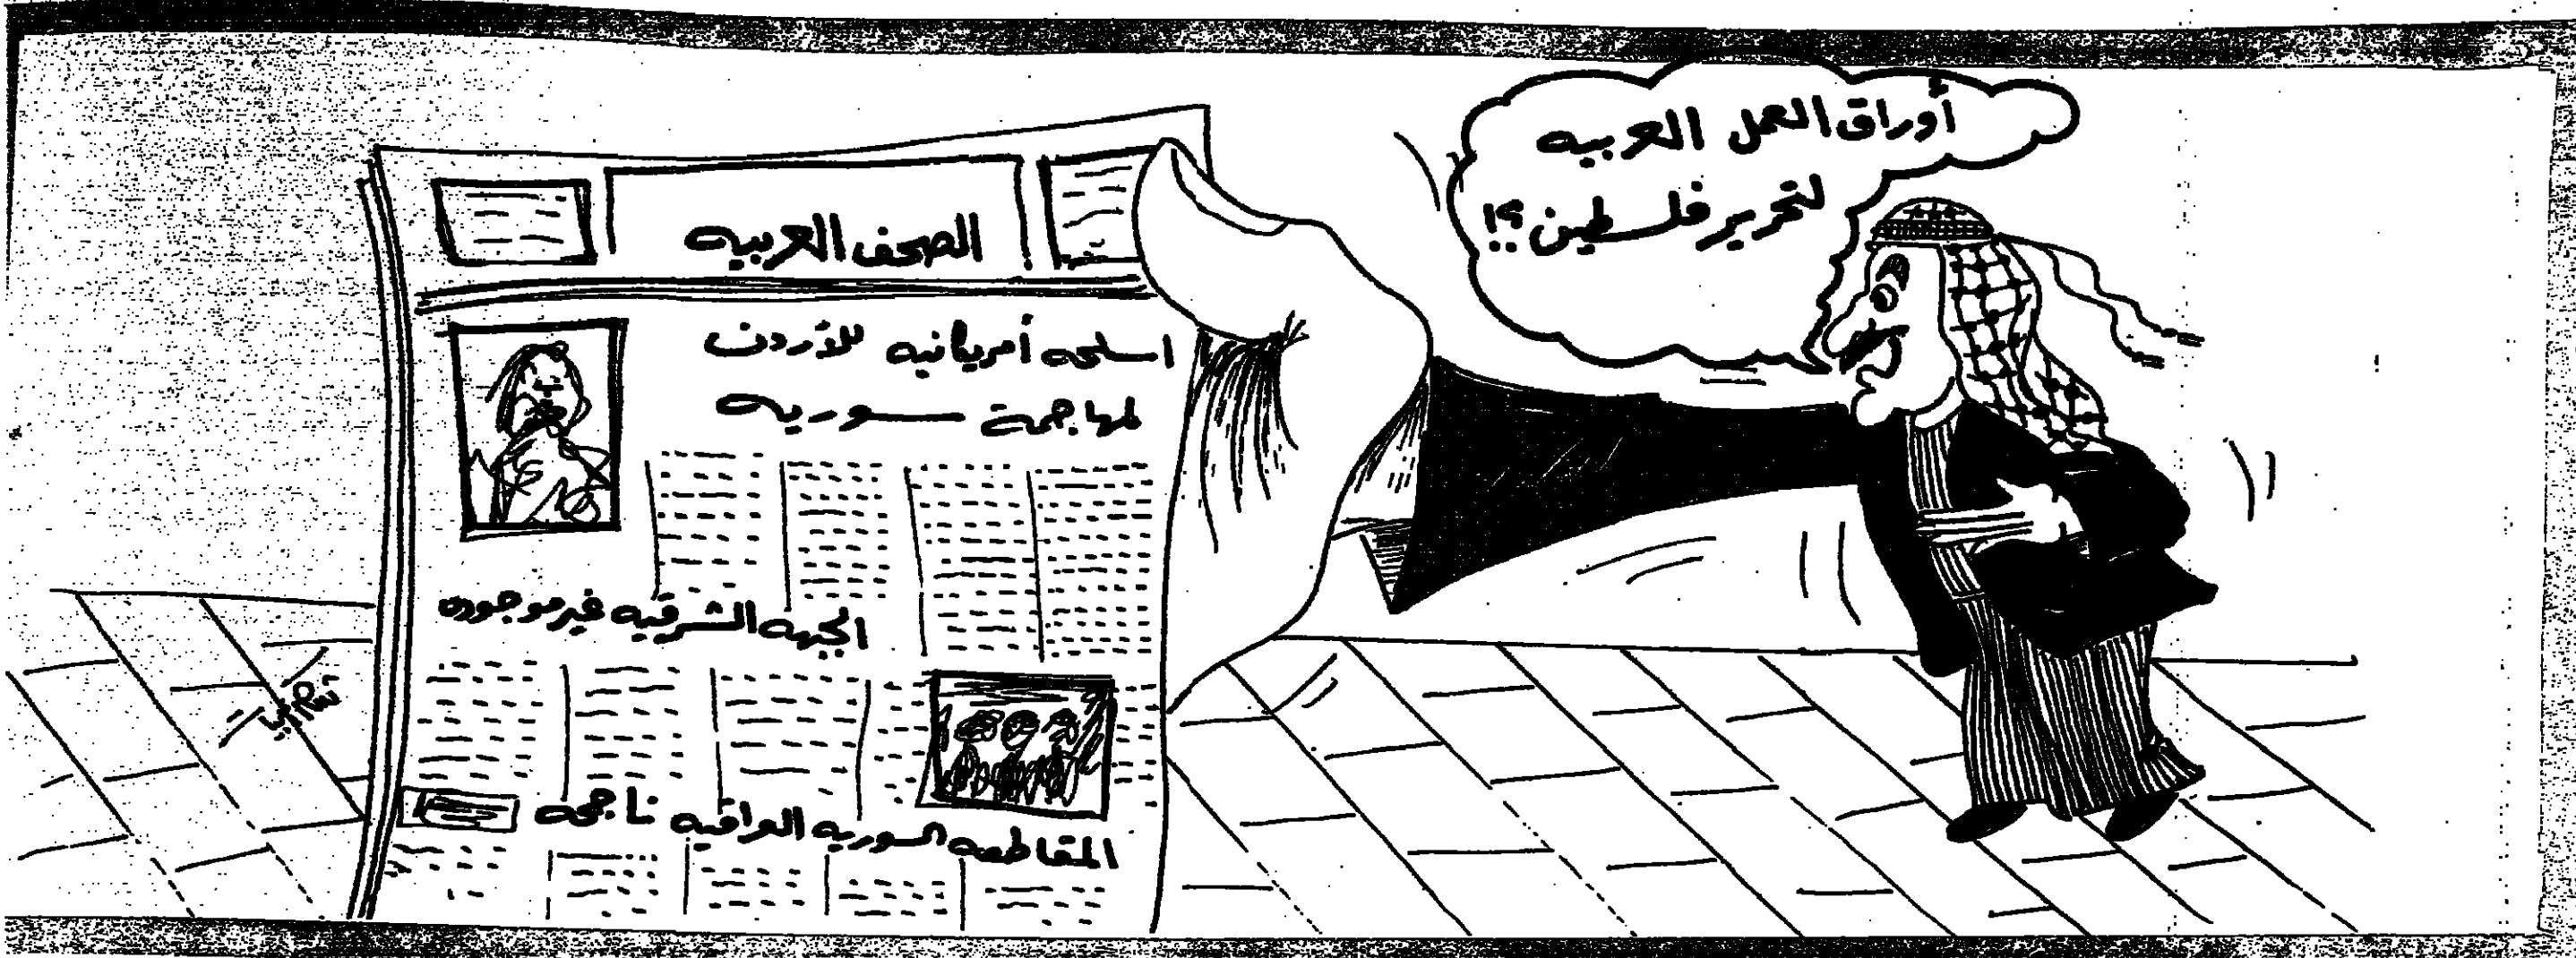 أوراق العمل العربيه
لتحرير فلسطين ؟!
الصحف العربيه
اسلحه أمريكانيه للأردن
لمهاجمة سوريه
الجبهه الشرقيه غير موجوده
المقاطعه السوريه العراقيه ناجحه